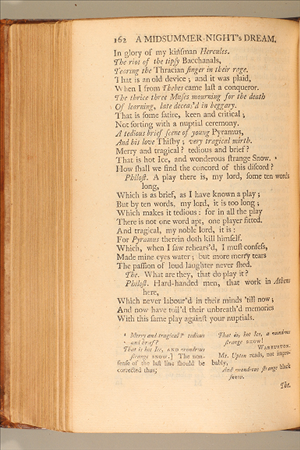 162 A MIDSUMMER-NIGHT's DREAM.
In glory of my kinsman Hercules.
The riot of the tipsy Bacchanals,
Tearing the Thracian singer in their rage.
That is an old device; and it was plaid,
When I from Thebes came last a conqueror.
The thrice three Muses mourning for the death
Of learning, late deceas'd in beggary.
That is some satire, keen and critical;
Not sorting with a nuptial ceremony.
A tedious brief scene of young Pyramus,
And his love Thisby; very tragical mirth.
Merry and tragical? tedious and brief?
That is hot Ice, and wonderous strange Snow.
How shall we find the concord of this discord?
Philost. A play there is, my lord, some ten words
long,
Which is as brief, as I have known a play;
But by ten words, my lord, it is too long;
Which makes it tedious: for in all the play
There is not one word apt, one player fitted.
And tragical, my noble lord, it is:
For Pyramus therein doth kill himself.
Which, when I saw rehears'd, I must confess,
Made mine eyes water; but more merry tears
The passion of loud laughter never shed.
The. What are they, that do play it?
Philost. Hard-handed men, that work in Athens
here,
Which never labour'd in their minds 'till now;
And now have toil'd their unbreath'd memories
With this same play against your nuptials.
Merry and tragical? tedious
and brief?
That is hot Ice, AND wondrous
strange SNOW.] The non-
sense of the last line should be
corrected thus;
That is, hot Ice, a wondrous
strange SHOW!
WARBURTON.
Mr. Upton reads, not impro-
bably,
And wondrous strange black
snow.
The.